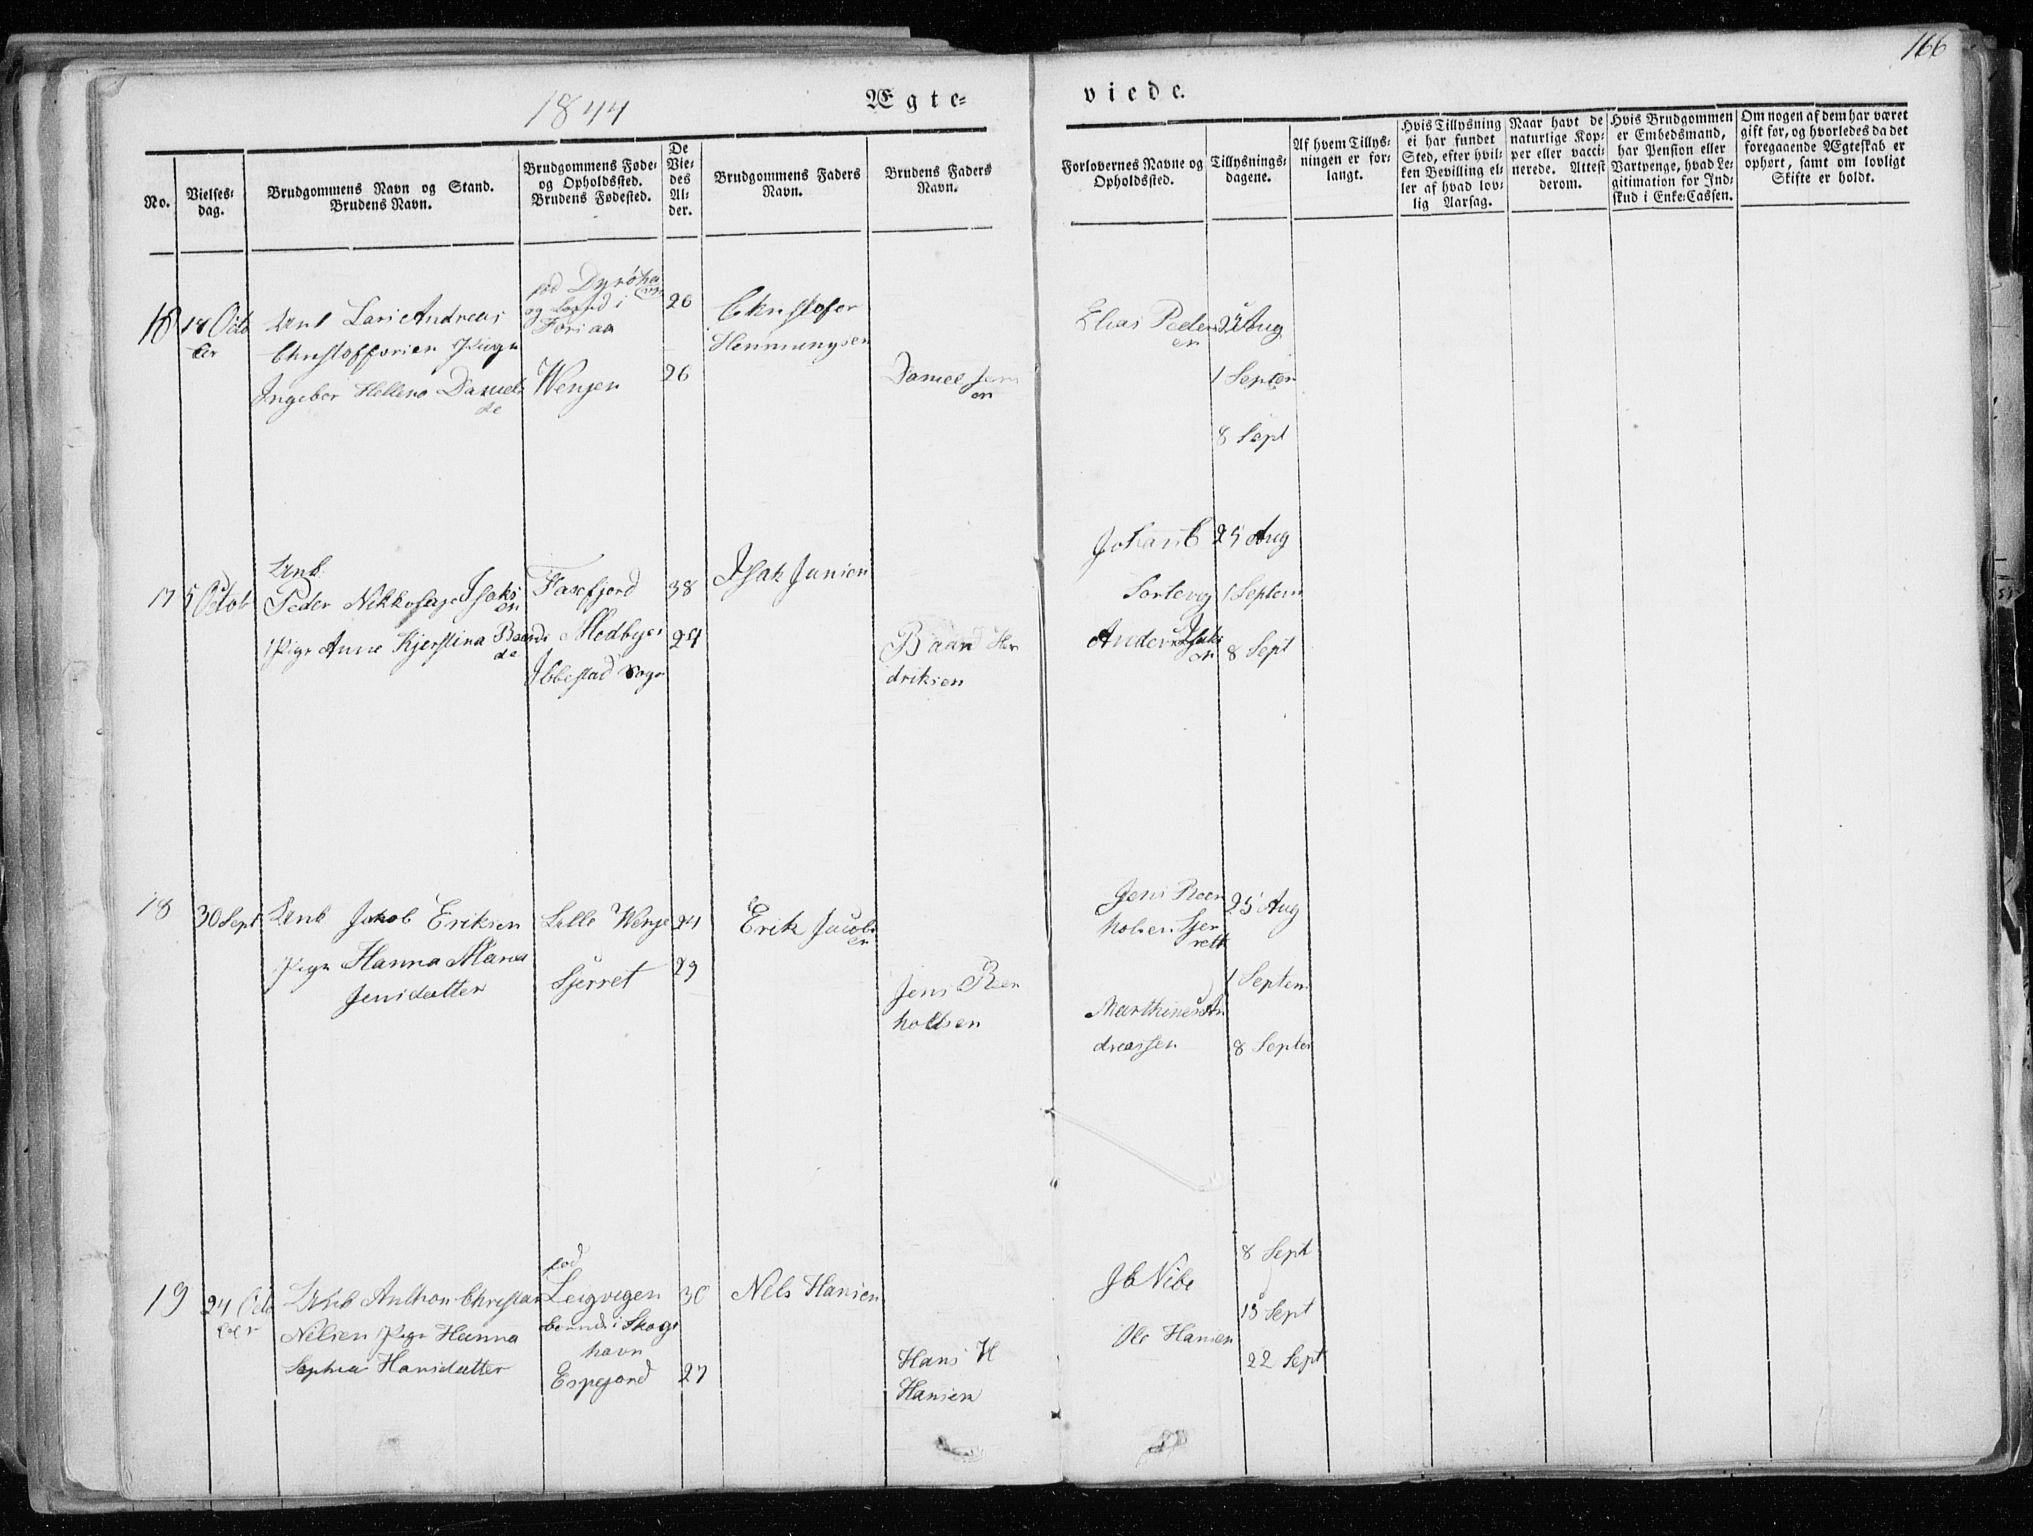 166
1844
Ægte=
viede.
No.
Vielses=
dag.
Brudgommens Navn og Stand.
Brudens Navn.
Brudgommens Føde=
og Opholdssted.
Brudens Fødested.
De
Vie=
des
Al=
der.
Brudgommens Faders
Navn.
Brudens Faders
Navn.
Forlovernes Navne og
Opholdssted.
Tillysnings=
dagene.
Af hvem Tillys=
ningen er for=
langt.
Hvis Tillysning
ei har fundet
Sted, efter hvil=
ken Bevilling el=
ler af hvad lov=
lig Aarsag.
Naar havt de
naturlige Kop=
per eller vacci=
nerede. Attest
derom.
Hvis Brudgommen
er Embedsmand,
har Pension eller
Vartpenge, hvad Le=
gitimation for Ind=
skud i Enke=Cassen.
Om nogen af dem har været
gift før, og hvorledes da det
foregaaende Ægteskab er
ophørt, samt om lovligt
Skifte er holdt.
16
18 Octo
ber
Unk Lars Andreas
Christoffersen Pige
Ingebor Hellena Daniels
de
fød Dyrø
og i
Wenjen
26
26
Christofer
Hemmingsen
Daniel Jens
en
Elias Peders
en
25 Aug
1 Septer
8 Sept
17
5 Octob
Unk
Peder Nikkolaje Isaks
en
Pige Anne Kjerstina Baards
de
Faxefjord
Medbye i
Ibbestad Sogn
38
24
Isak Jensen
Baar Hen
driksen
Johan C
Sortevig
Anders Isaks
en
25 Aug
1 Septem
8 Sept
18
30 Sept
Unk Jakob Eriksen
Pige Hanna Maria
Jensdatter
Lille Wenje
Sjerret
24
29
Erik Jacobs
en
Jens Reen
holdsen
Jens Reen
holsen Sjer
reth
Marthines An
dreassen
25 Aug
1 Septem
8 Septer
19
24 Octo
ber
Unk Anthon Christian
Nilsen Pige Hanna
Sophia Hansdatter
fød
Leigvigen
boende i Skogs
havn
Espejord
30
27
Nels Hansen
Hans H
Hansen
Jb Nibe
Ole Hansen
8 Sept
15 Sept
22 Sept